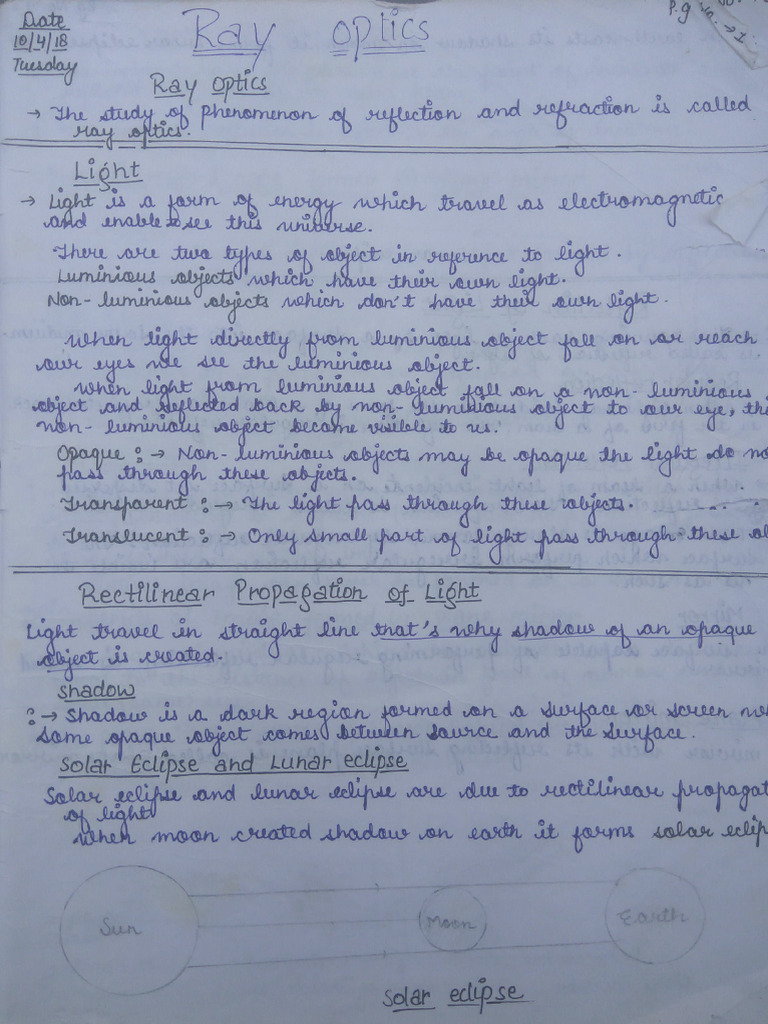 Date
10/4/18
Tuesday
P.g
Ray optics
Ray optics
→ The study of phenomenon of reflection and refraction is called
ray optics.
Light
→ Light is a form of energy which travel as electromagnetic
and enable to see this universe.
There are two types of object in reference to light.
Luminious objects which have their own light.
Non-luminious objects which don't have their own light.
When light directly from luminious object fall on or reach
our eyes we see the luminious object.
When light from luminious object fall on a non-luminious
object and reflected back by non-luminious object to our eye, thi
non-luminious object became visible to us.
Opaque :→ Non-luminious objects may be opaque the light do no
pass through these objects.
Transparent :→ The light pass through these objects.
Translucent :→ Only small part of light pass through these ob
Rectilinear Propagation of Light
Light travel in straight line that's why shadow of an opaque
object is created.
Shadow
:→ Shadow is a dark region formed on a surface or screen
some opaque object comes between source and the surface.
Solar Eclipse and Lunar eclipse
Solar eclipse and lunar eclipse are due to rectilinear propagat
of light
When moon created shadow on earth it forms solar eclip
Sun Moon Earth
Solar eclipse